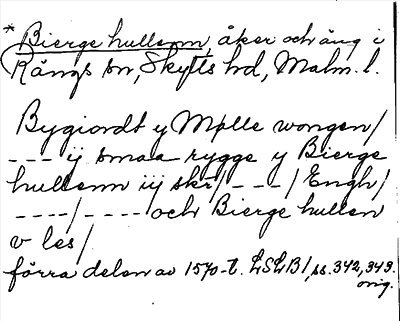 * Bierge hullenn, åker och äng i
Rängs sn, Skytts hd, Malm. l.
Bygiordt y Mølle wongen/
--- ij smaa rygge y Bierge
hullenn iij skr/ ---/ Engh/
----/ ---- och Bierge hullen
v les/
förra delen av 1570-t. LSLB 1, ss. 342, 343.
orig.